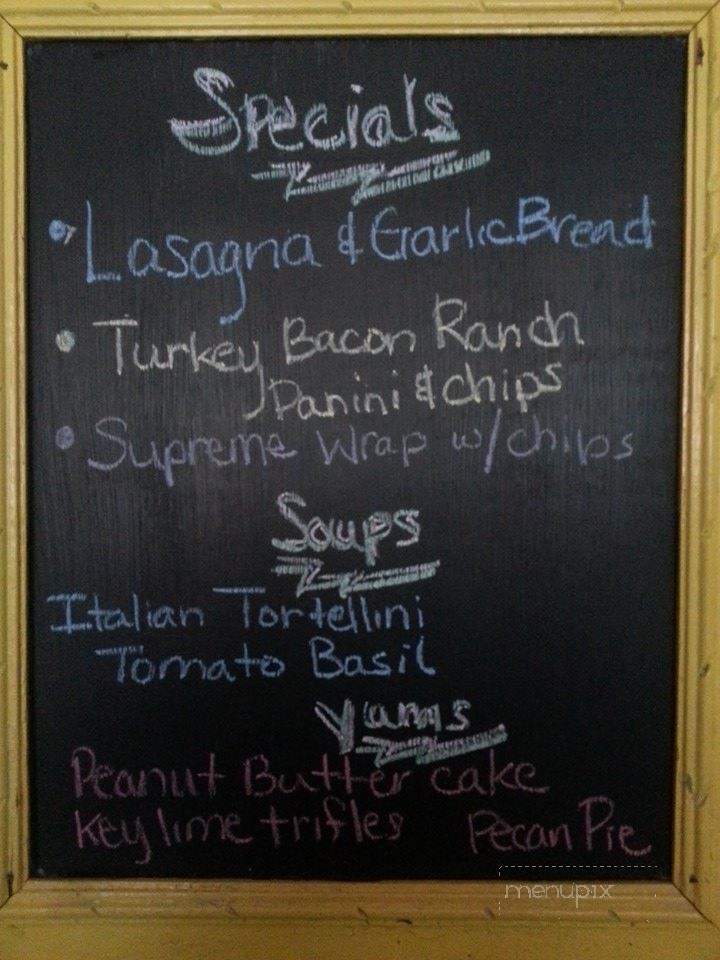 Specials
• Lasagna & Garlic Bread
• Turkey Bacon Ranch
Panini & chips
• Supreme Wrap w/chips
Soups
Italian Tortellini
Tomato Basil
Yums
Peanut Butter cake
Key lime trifles Pecan Pie
menupix